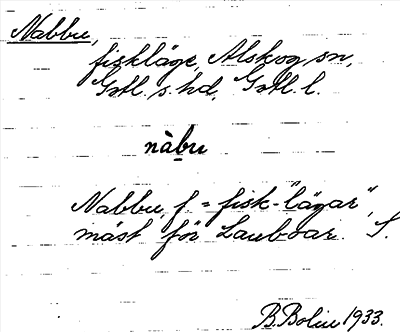 Nabbu,
fiskläge, Alskog sn,
Gotl. s. hd, Gotl. l.
nàbu
Nabbu, f. = fisk-"lägar",
mäst för Lauboar. S.
B. Bolin 1933.